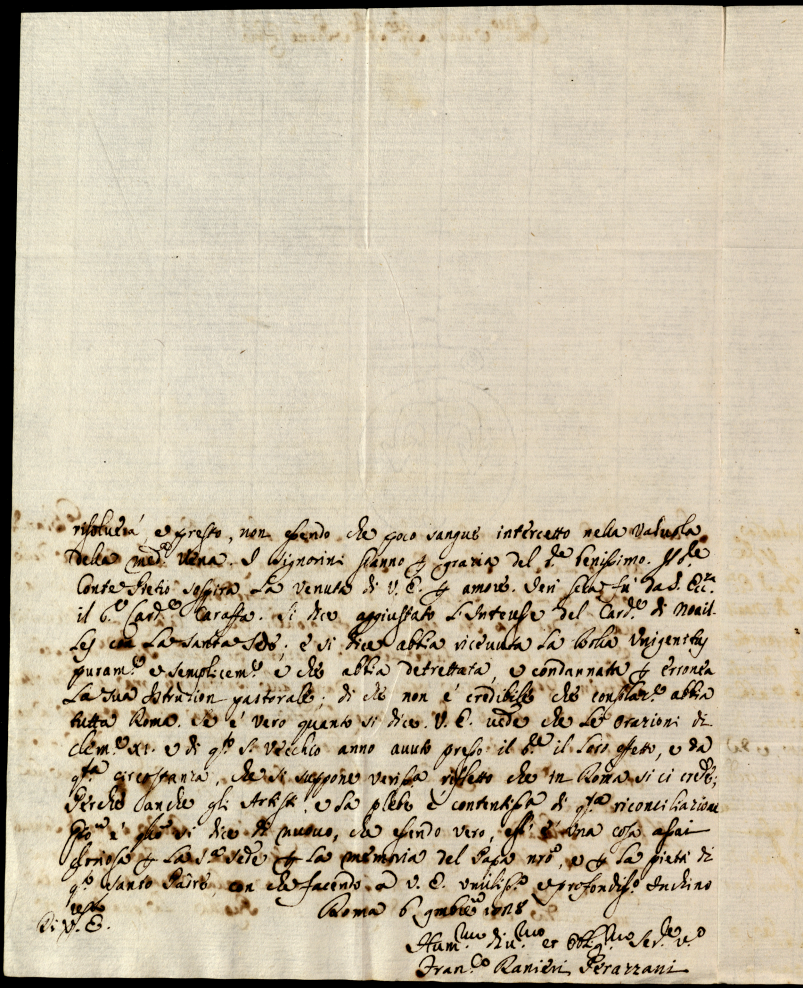 risolverà, e presto, non essendo che poco sangue intercetto nella valvola
della med.ª vena. I Signorini stanno p grazia del S.re benissimo. Il S.re
Conte Stelio sospira la venuta di V. E. p amore. Ieri sera fù da S. Ecc.za
il S.r Card.le Caraffa. Si dice aggiustato l'Interesse del Card.le di Noail-
les con la Santa Sede; e si dice abbia ricevuta la bolla Unigenitus
puram.e e semplicem.e e che abbia detrettata, e condannata p erronea
la sua Istruzion pastorale; di che non è credibile che consolaz.e abbia
tutta Roma. Se è vero quanto si dice. V. E. vede che le orazioni di
Clem.e XI. e di q.sto S. Vecchio anno avuto presso il S.re il loro effetto, e da
q.sta circostanza, che si suppone verissa rifletto che in Roma si ci crede;
Perche anche gli Artisti, e la plebe è contentissa di q.sta riconciliazione
che si dice di nuovo, che essendo vero, è una cosa assai
gloriosa p la S.ta Sede p la memoria del Papa nro, e p la pietà di
q.sto Santo Padre, con che facendo a V. E. umiliss.o e profondiss.o Inchino
resto Roma 6 9mbre 1728
Di V. E.
Hum.mo div.mo et obblig.mo Ser.re v.o
Fran.co Ranieri Perazzani